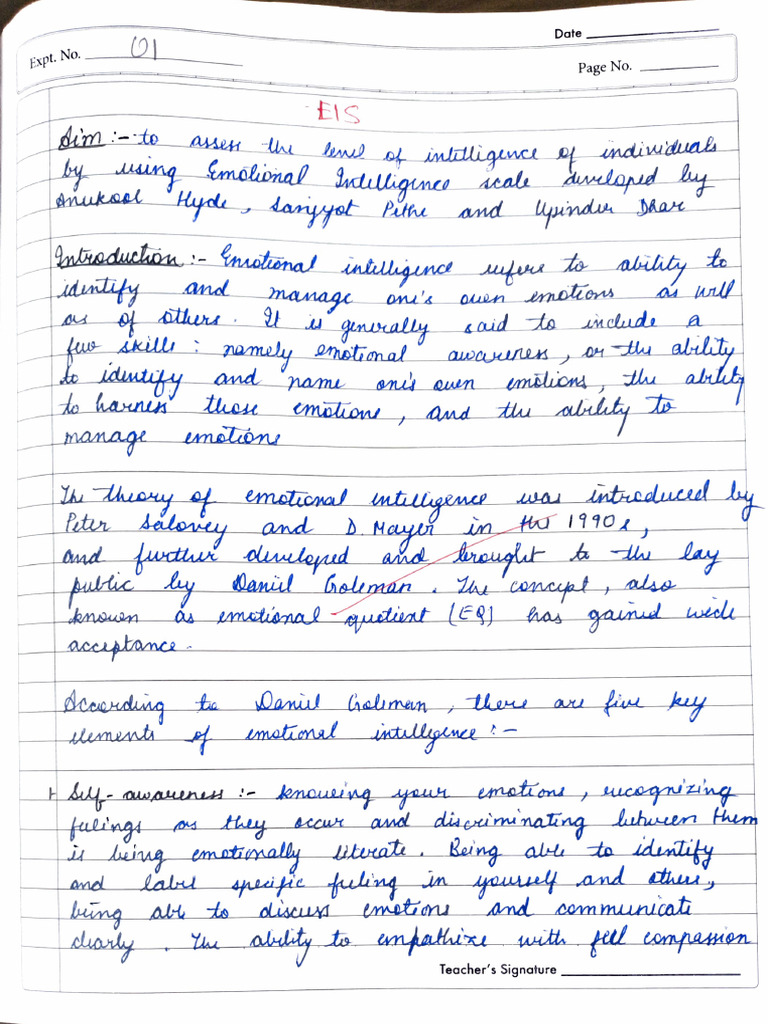 Date
Expt. No. 01
Page No.
EIS
Aim :- to assess the level of intelligence of individuals
by using Emotional Intelligence scale developed by
Anukool Hyde, Sanjyot Pethe and Upinder Dhar
Introduction :- Emotional intelligence refers to ability to
identify and manage one's own emotions as well
as of others. It is generally said to include a
few skills : namely emotional awareness, or the ability
to identify and name one's own emotions, the ability
to harness those emotions, and the ability to
manage emotions
The theory of emotional intelligence was introduced by
Peter Salovey and D. Mayer in the 1990s,
and further developed and brought to the lay
public by Daniel Goleman. The concept, also
known as emotional quotient (EQ) has gained wide
acceptance.
According to Daniel Goleman, there are five key
elements of emotional intelligence :-
1 Self-awareness :- knowing your emotions, recognizing
feelings as they occur and discriminating between them
is being emotionally literate. Being able to identify
and label specific feeling in yourself and others,
being able to discuss emotions and communicate
clearly. The ability to empathize with fell compassion
Teacher's Signature